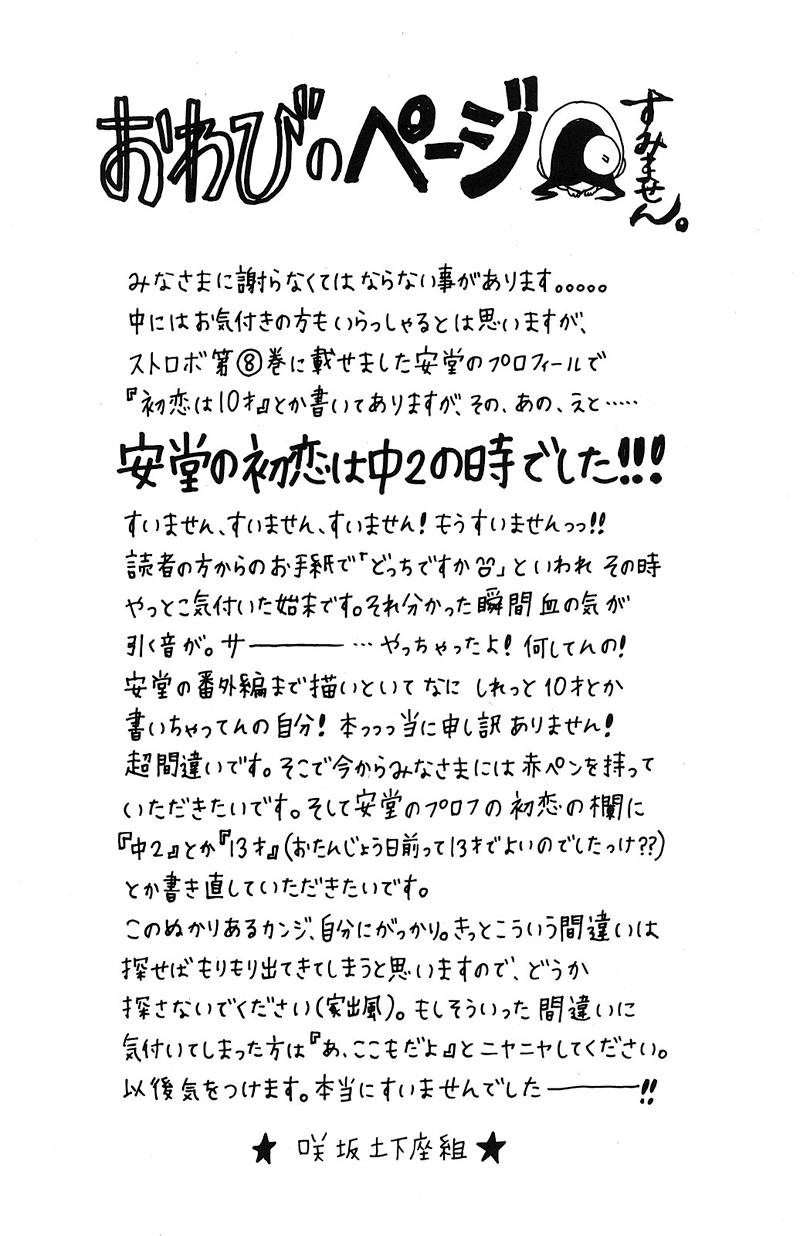 おわびのページ
すみません。
みなさまに謝らなくてはならない事があります。。。。。
中にはお気付きの方もいらっしゃるとは思いますが、
ストロボ第⑧巻に載せました安堂のプロフィールで
『初恋は10才』とか書いてありますが、その、あの、えと……
安堂の初恋は中2の時でした!!!
すいません、すいません、すいません!もうすいませんっっ!!
読者の方からのお手紙で「どっちですか」といわれ その時
やっとこ気付いた始末です。それ分かった瞬間血の気が
引く音が。サ――― … やっちゃったよ!何してんの!
安堂の番外編まで描いといて なに しれっと10才とか
書いちゃってんの自分!本っっっ当に申し訳ありません!
超間違いです。そこで今からみなさまには赤ペンを持って
いただきたいです。そして安堂のプロフの初恋の欄に
『中2』とか『13才』(おたんじょう日前って13才でよいのでしたっけ??)
とか書き直していただきたいです。
このぬかりあるカンジ、自分にがっかり。きっとこういう間違いは
探せばもりもり出てきてしまうと思いますので、どうか
探さないでください(家出風)。もしそういった間違いに
気付いてしまった方は『あ、ここもだよ』とニヤニヤしてください。
以後気をつけます。本当にすいませんでした―――!!
★ 咲坂土下座組 ★